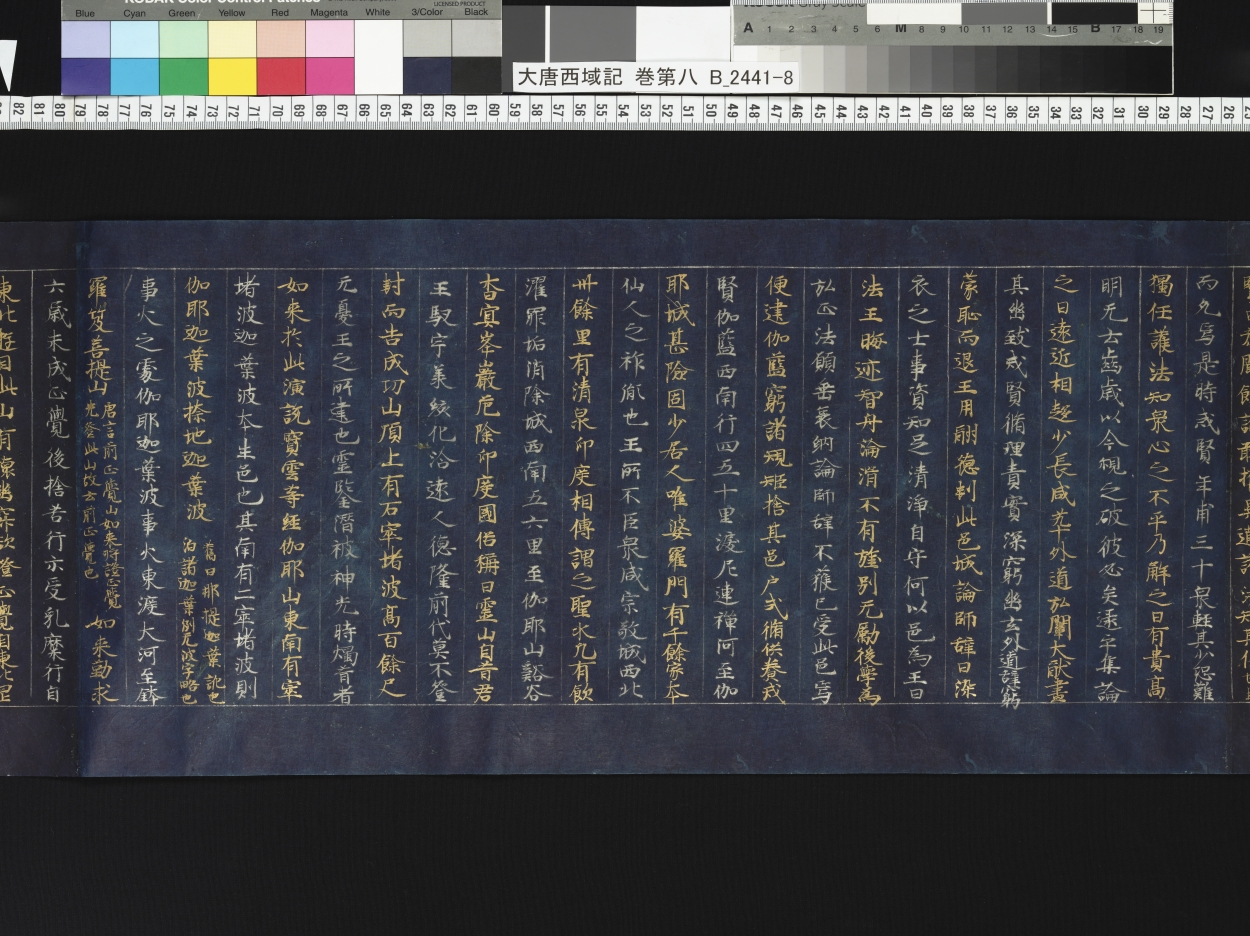 KODAK Color Control Patches
LICENSED PRODUCT
Blue Cyan Green Yellow Red Magenta White 3/Color Black
A 1 2 3 4 5 6 M 8 9 10 11 12 13 14 15 B 17 18 19
大唐西域記 巻第八 B_2441-8
82 81 80 79 78 77 76 75 74 73 72 71 70 69 68 67 66 65 64 63 62 61 60 59 58 57 56 55 54 53 52 51 50 49 48 47 46 45 44 43 42 41 40 39 38 37 36 35 34 33 32 31 30 29 28 27 26
而允焉是時戒賢年甫三十衆輕其少恐難
獨任護法知衆心之不平乃解之曰有貴高
明无云齒歳以今覩之破彼必矣逮乎集論
之日遠近相趍少長咸萃外道弘闡大猷盡
其幽致戒賢循理責實深窮幽玄外道辞窮
蒙恥而退王用酬德封此邑城論師辞曰染
衣之士事資知足清淨自守何以邑爲王曰
法王晦迹智舟淪湑不有旌別无勵後學爲
弘正法願垂哀納論師辞不獲已受此邑焉
便建伽藍窮諸規矩捨其邑戸式修供養戒
賢伽藍西南行四五十里渡尼連禪河至伽
耶城甚險固少居人唯婆羅門有千餘家大
仙人之祚胤也王所不臣衆咸宗敬城西北
卅餘里有清泉印度相傳謂之聖水凡有飲
濯罪垢消除城西南五六里至伽耶山谿谷
杳冥峯巖危險印度國俗稱曰靈山自昔君
王馭宇美紋化洽遠人德隆前代莫不登
封而告成功山頂上有石窣堵波高百餘尺
无憂王之所建也靈鑒潛被神光時燭昔者
如來於此演説寶雲等經伽耶山東南有窣
堵波迦葉波本生邑也其南有二窣堵波則
伽耶迦葉波捺地迦葉波 舊曰那提迦葉訛也洎諸迦葉例无波字略也
事火之處伽耶迦葉波事火東渡大河至鉢
羅笈菩提山 唐言前正覺山如來將證正覺先登此山故云前正覺也 如來勤求
六歳未成正覺後捨苦行示受乳糜行自